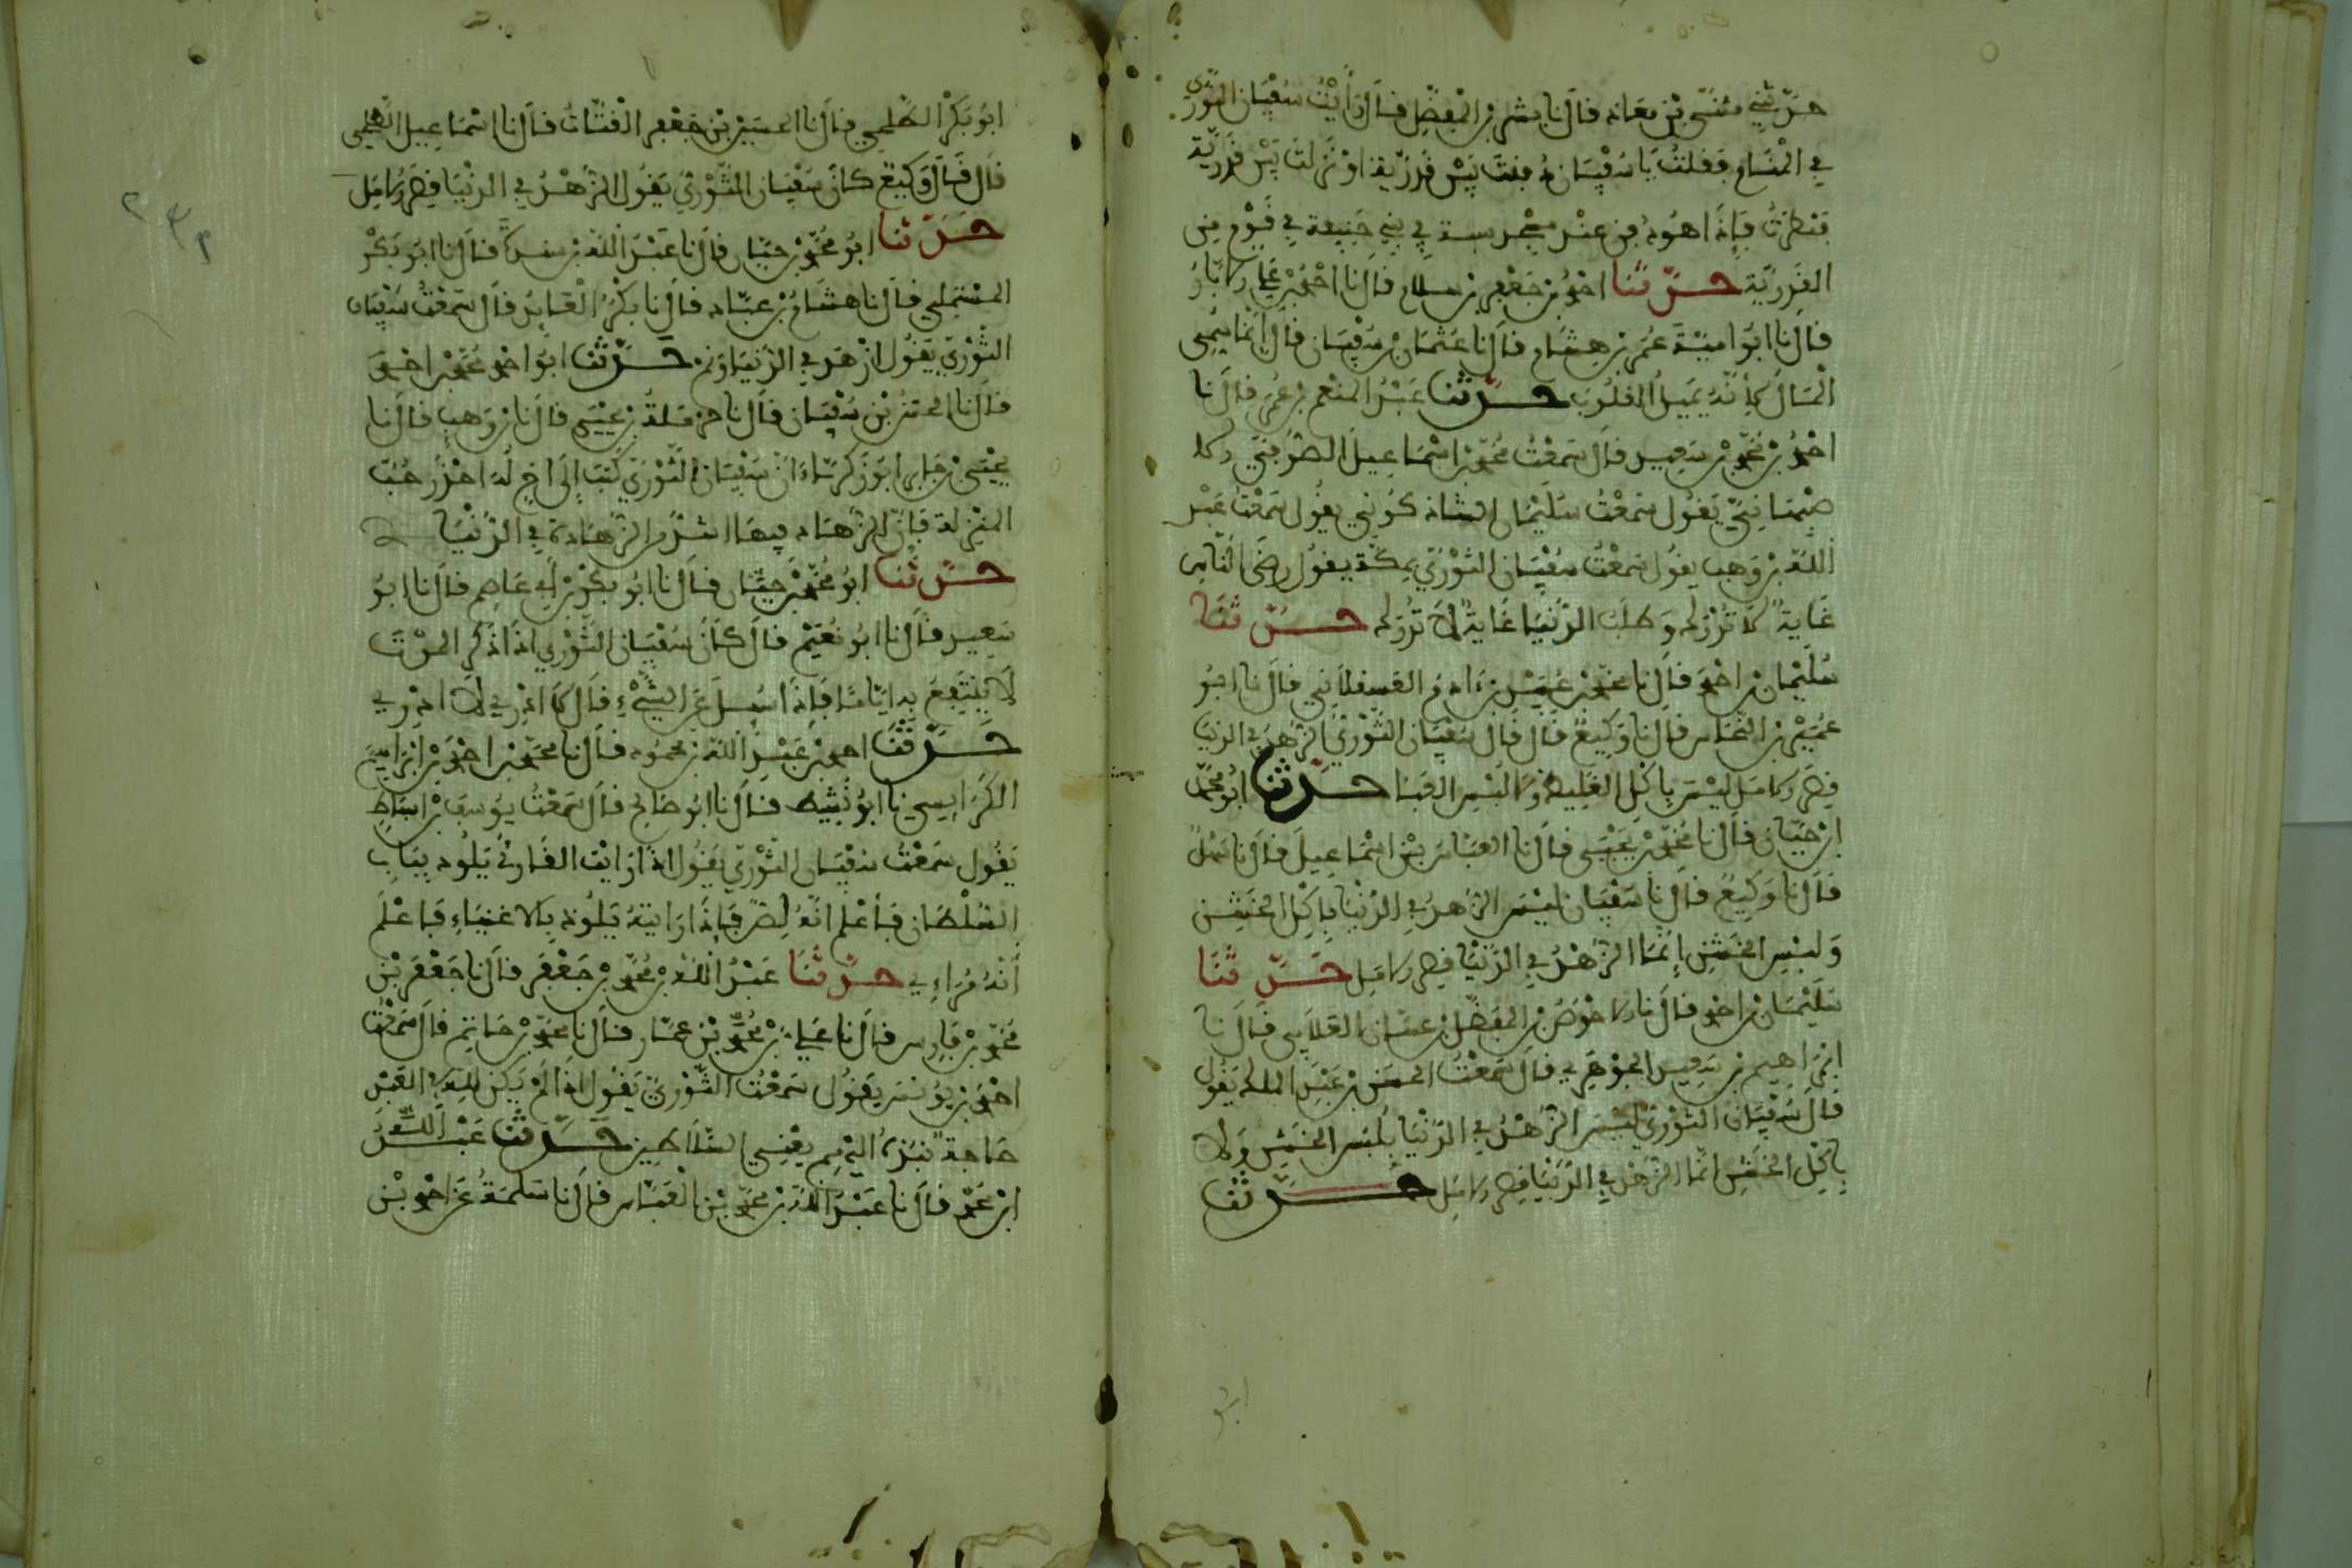 حدثني مثنى بن معاذ قال نا بشر بن المفضل قال رأيت سفيان الثوري
في المنام فقلت يا سفيان دفنت بين قدرية او نزلت بين قدرية
فنظرت فإذا هو دفن عند في بني حنيفة في قوم من
القدرية حدثنا احمد بن جعفر بن سلام قال نا احمد بن علي الابار
قال نا ابو امية عمر بن هشام قال نا عثمان بن سفيان قال إنما سمي
المال لأنه يميل القلوب حدثنا عبد المنعم بن عمر قال نا
احمد بن محمد بن سعيد قال سمعت محمد بن اسماعيل
يقول سمعت سليمان الشاذكوني يقول سمعت عبد
الله بن وهب يقول سمعت سفيان الثوري بمكة يقول رضى الناس
غاية لا تدرك وطلب الدنيا غاية لا تدرك حدثنا
سليمان بن احمد قال نا محمد بن عبيد بن ءادم العسقلاني قال نا ابو
عمير بن النحاس قال نا وكيع قال قال سفيان الثوري الزهد في الدنيا
قصر الامل ليس باكل الغليظ ولا لبس العبا حدثنا ابو محمد
ابن حيان قال نا محمد بن يحيى قال نا العباس بن اسماعيل قال نا سهل
قال نا وكيع قال نا سفيان ليس الزهد في الدنيا باكل الخشن
ولبس الخشن إنما الزهد في الدنيا قصر الامل حدثنا
سليمان بن احمد قال نا الاحوص بن المفضل بن غسان الغلابي قال نا
ابراهيم بن سعيد الجوهري قال سمعت الحسن بن عبد الملك يقول
قال سفيان الثوري ليس الزهد في الدنيا بلبس الخشن ولا
باكل الخشن انما الزهد في الدنيا قصر الامل حدثنا
ابو بكر الطلحي قال نا الحسين بن جعفر القتات قال نا اسماعيل الطلحي
قال قال وكيع كان سفيان الثوري يقول الزهد في الدنيا قصر الامل
حدثنا ابو محمد بن حيان قال نا عبد الله بن قال نا ابو بكر
المستملي قال نا هشام بن عباد قال نا بكر العابد قال سمعت سفيان
الثوري يقول ازهد في الدنيا ونم حدثنا ابو احمد محمد بن احمد
قال نا الحسن بن سفيان قال نا حرملة بن يحيى قال نا بن وهب قال نا
يحيى بن جابر ابو زكرياء ان سفيان الثوري كتب إلى اخ له احذر حب
المنزلة فإن الزهاد فيها اشد من الزهاد في الدنيا
حدثنا ابو محمد بن حيان قال نا ابو بكر بن ابي عاصم قال نا ابو
سعيد قال نا ابو نعيم قال كان سفيان الثوري اذا ذكر الموت
لا ينتفع به اياما فإذا سئل عن الشيء قال لا ادري لا ادري
حدثنا احمد بن عبد الله بن محمود قال نا محمد بن احمد بن ابراهيم
الكرابيسي نا ابو نشيط قال نا ابو صالح قال سمعت يوسف بن اسباط
يقول سمعت سفيان الثوري يقول اذا رأيت القارئ يلوذ بباب
السلطان فاعلم انه لص فإذا رايته يلوذ بالاغنياء فاعلم
أنه مراءي حدثنا عبد الله بن محمد بن جعفر قال نا جعفر بن
محمد بن فارس قال نا علي بن محمد بن عمار قال نا محمد بن حاتم قال سمعت
احمد بن يونس يقول سمعت الثوري يقول اذا لم يكن لله في العبد
حاجة نبذه اليهم يعني السلاطين حدثنا عبد الله
ابن محمد قال نا عبد الله بن محمد بن العباس قال نا سلمة عن احمد بن